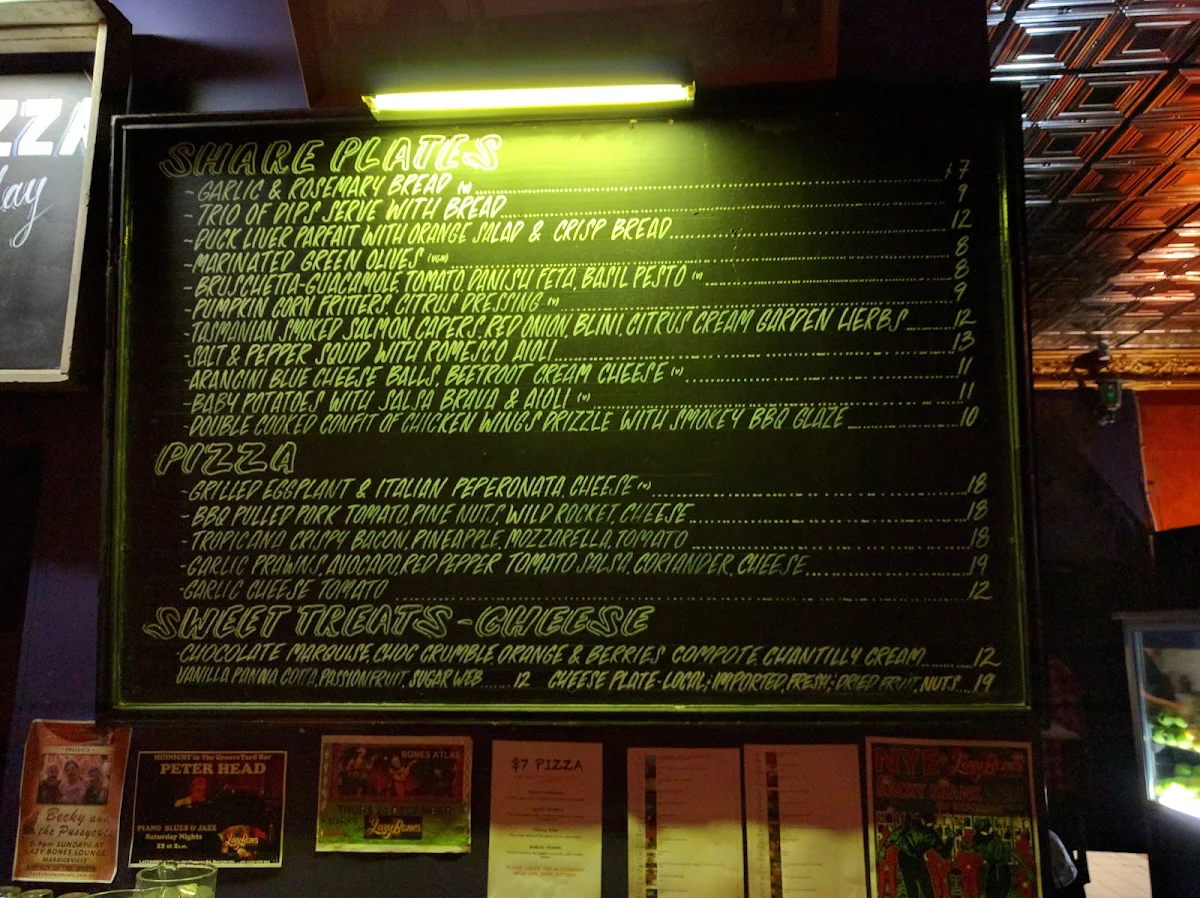 ZZA
SHARE PLATES
- GARLIC & ROSEMARY BREAD (V) $7
- TRIO OF DIPS SERVE WITH BREAD 9
- DUCK LIVER PARFAIT WITH ORANGE SALAD & CRISP BREAD 12
- MARINATED GREEN OLIVES (VGN) 8
- BRUSCHETTA-GUACAMOLE TOMATO, DANISH FETA, BASIL PESTO (V) 8
- PUMPKIN CORN FRITTERS, CITRUS DRESSING (V) 9
- TASMANIAN SMOKED SALMON, CAPERS, RED ONION, BLINI, CITRUS CREAM GARDEN HERBS 12
- SALT & PEPPER SQUID WITH ROMESCO AIOLI 13
- ARANCINI BLUE CHEESE BALLS, BEETROOT CREAM CHEESE (V) 11
- BABY POTATOES WITH SALSA BRAVA & AIOLI (V) 11
- DOUBLE COOKED CONFIT OF CHICKEN WINGS DRIZZLE WITH SMOKEY BBQ GLAZE 10
PIZZA
- GRILLED EGGPLANT & ITALIAN PEPERONATA, CHEESE (V) 18
- BBQ PULLED PORK TOMATO, PINE NUTS, WILD ROCKET, CHEESE 18
- TROPICANA CRISPY BACON, PINEAPPLE, MOZZARELLA, TOMATO 18
- GARLIC PRAWNS, AVOCADO, RED PEPPER TOMATO SALSA, CORIANDER, CHEESE 19
- GARLIC CHEESE TOMATO 12
SWEET TREATS - CHEESE
- CHOCOLATE MARQUISE, CHOC CRUMBLE, ORANGE & BERRIES COMPOTE, CHANTILLY CREAM 12
VANILLA PANNA COTTA, PASSIONFRUIT, SUGAR WEB 12 CHEESE PLATE - LOCAL; IMPORTED, FRESH; DRIED FRUIT, NUTS 19
- PRESENTS -
Becky and
the Pussycats
SUNDAYS @
LAZY BONES LOUNGE
MARRICKVILLE
MIDNIGHT in The GrooveYard Bar
PETER HEAD
PIANO BLUES & JAZZ
Saturday Nights
LazyBones
BONES ATLAS
DECEMBER
LazyBones
$7 PIZZA
NYE LazyBones